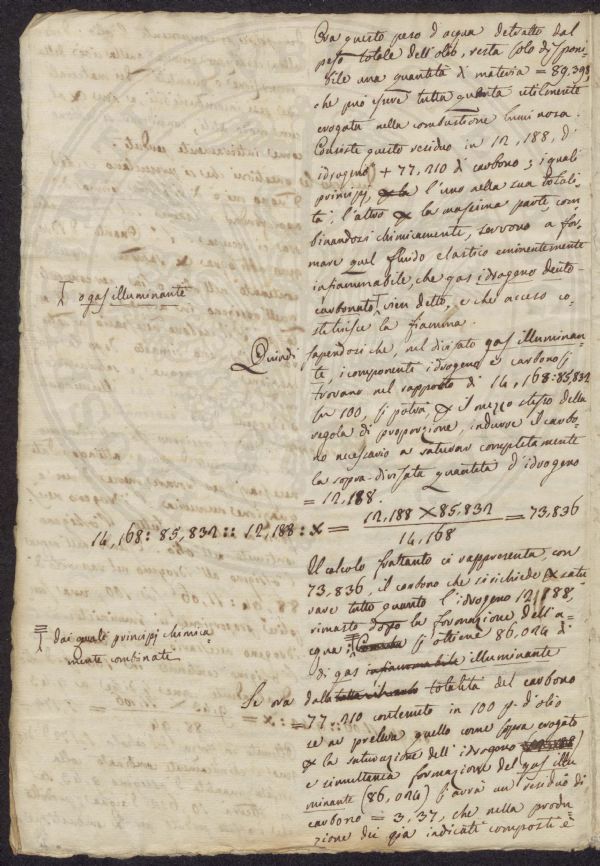 Ora questo peso d'acqua detratto dal
peso totale dell'olio, resta solo dispon-
bile una quantità di materia = 89,398
che può essere tutta quanta utilmente
erogata nella combustione luminosa.
Consiste questo residuo in 12,188, di
idrogino + 77,210 di carbono; i quali
principj, l'uno nella sua totali-
tà, l'altro la massima parte, com-
binandosi chimicamente, servono a for-
mare quel fluido elastico eminentemente
infiammabile, che gas idrogeno deuto-
carbonato vien detto, e che acceso co-
stituisce la fiamma.
o gas illuminante
Quindi sapendosi che, nel divisato gas illuminan-
te, i componenti idrogeno e carbono si
trovano nel rapporto di 14,168:85,832
in 100, si potrà, il mezzo stesso della
regola di proporzione, indurre il carbo-
no necessario a saturar completamente
la sopra-divisata quantità d'idrogeno
= 12,188.
14,168 : 85,832 :: 12,188 : x = 12,188 × 85,832 / 14,168 = 73,836
Il calcolo frattanto ci rappresenta con
73,836, il carbono che si richiede satu-
rare tutto quanto l'idrogeno 12,188,
rimasto dopo la formazione dell'a-
cqua: si ottiene 86,024 di
di gas infiammabile illuminante
dai quali principj chimica-
mente combinati
Se ora dalla totalità del carbono
77,210 contenuto in 100 p. d'olio
se ne preleva quello come sopra erogato
la saturazione dell'idrogeno
e simultanea formazione del gas illu-
minante (86,024) si avrà un residuo di
carbono = 3,37, che nella produ-
zione dei già indicati composti è